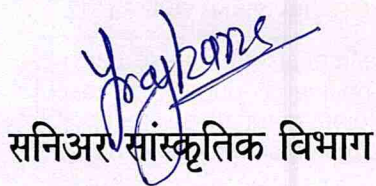 सनिअर सांस्कृतिक विभाग